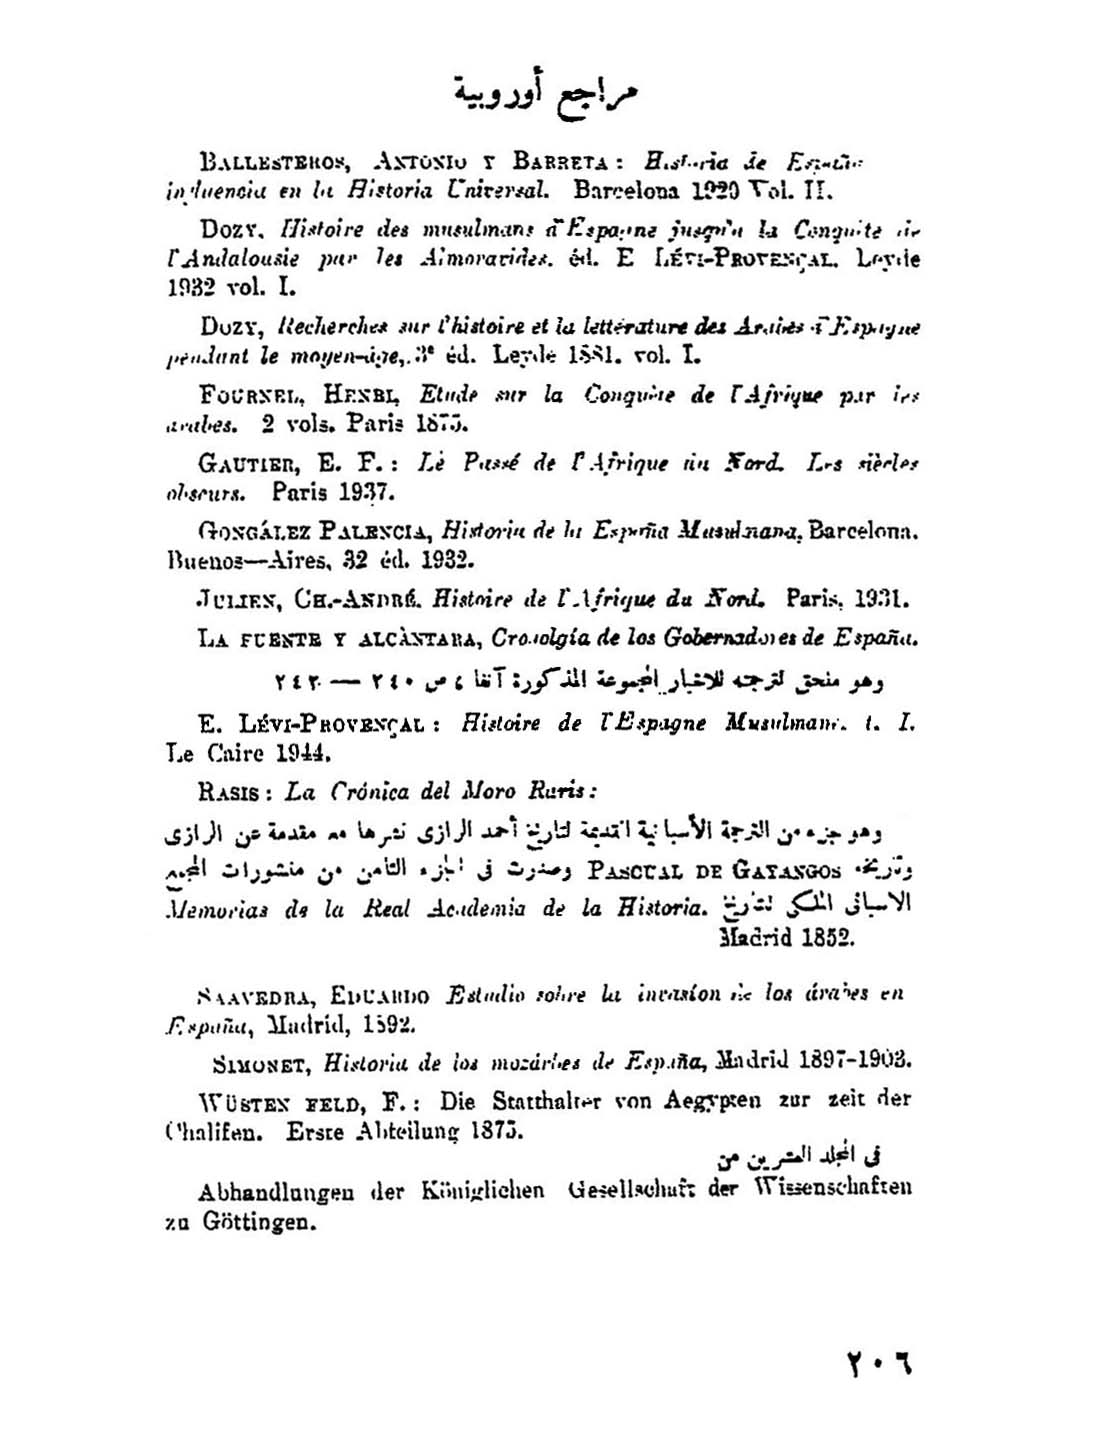 مراجع أوروبية
BALLESTEROS, ANTONIO Y BARRETA : Historia de España
influencia en la Historia Universal. Barcelona 1920 Vol. II.
DOZY, Histoire des musulmans d'Espagne jusqu'a la Conquête de
l'Andalousie par les Almoravides. éd. E LÉVI-PROVENÇAL. Leyde
1932 vol. I.
DOZY, Recherches sur l'histoire et la lettérature des Arabes d'Espagne
pendant le moyen-âge, 3e éd. Leyde 1881. vol. I.
FOURNEL, HENRI, Etude sur la Conquête de l'Afrique par les
arabes. 2 vols. Paris 1875.
GAUTIER, E. F. : Le Passé de l'Afrique du Nord. Les siècles
obscurs. Paris 1937.
GONGÁLEZ PALENCIA, Historia de la España Musulmana, Barcelona.
Buenos—Aires, 32 éd. 1932.
JULIEN, CH.-ANDRÉ. Histoire de l'Afrique du Nord. Paris, 1931.
LA FUENTE Y ALCÀNTARA, Cronolgía de los Gobernadores de España.
وهو ملحق لترجمته للاخبار المجموعة المذكورة آنفا ، ص ٢٤٠ — ٢٤٣
E. LÉVI-PROVENÇAL : Histoire de l'Espagne Musulmane. t. I.
Le Caire 1944.
RASIS : La Crónica del Moro Raris :
وهو جزء من الترجمة الأسبانية القديمة لتاريخ أحمد الرازى نشرها مع مقدمة عن الرازى
وتاريخه PASCUAL DE GAYANGOS وصدرت فى الجزء الثامن من منشورات المجمع
الاسبانى الملكى لتاريخ Memorias de la Real Academia de la Historia.
Madrid 1852.
SAAVEDRA, EDUARDO Estudio sobre la invasíon de los árabes en
España, Madrid, 1892.
SIMONET, Historia de los mozárbes de España, Madrid 1897-1903.
WÜSTEN FELD, F. : Die Statthalter von Aegypten zur zeit der
Chalifen. Erste Abteilung 1875.
فى المجلد العشرين من
Abhandlungen der Königlichen Gesellschaft der Wissenschaften
zu Göttingen.
٢٠٦